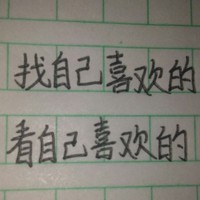 找自己喜欢的
看自己喜欢的